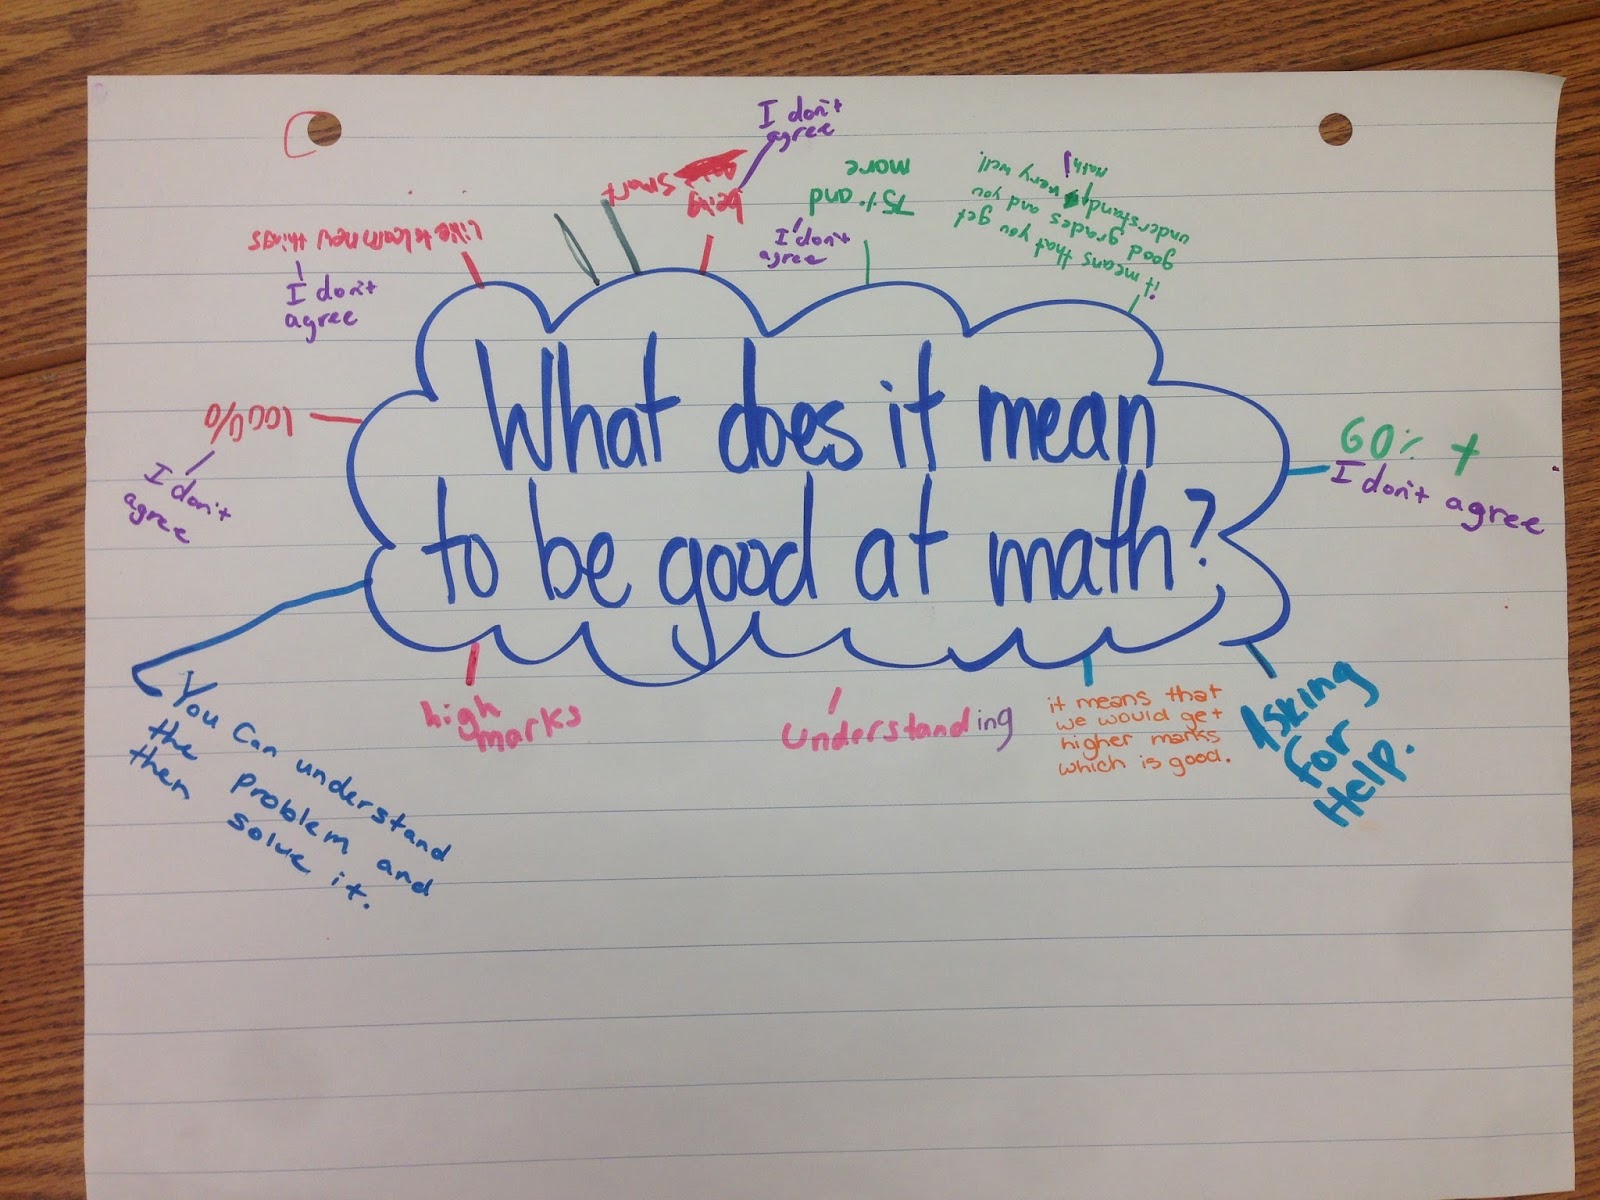 What does it mean
to be good at math?
I don't
agree
being
smart
75% and
more
I don't
agree
it means that you get
good grades and you
understand very well!
Math!
like to learn new things
I don't
agree
100%
I don't
agree
60% +
I don't agree
You can understand
the problem and
then solve it.
high
marks
understanding
it means that
we would get
higher marks
which is good.
Asking
for
Help.